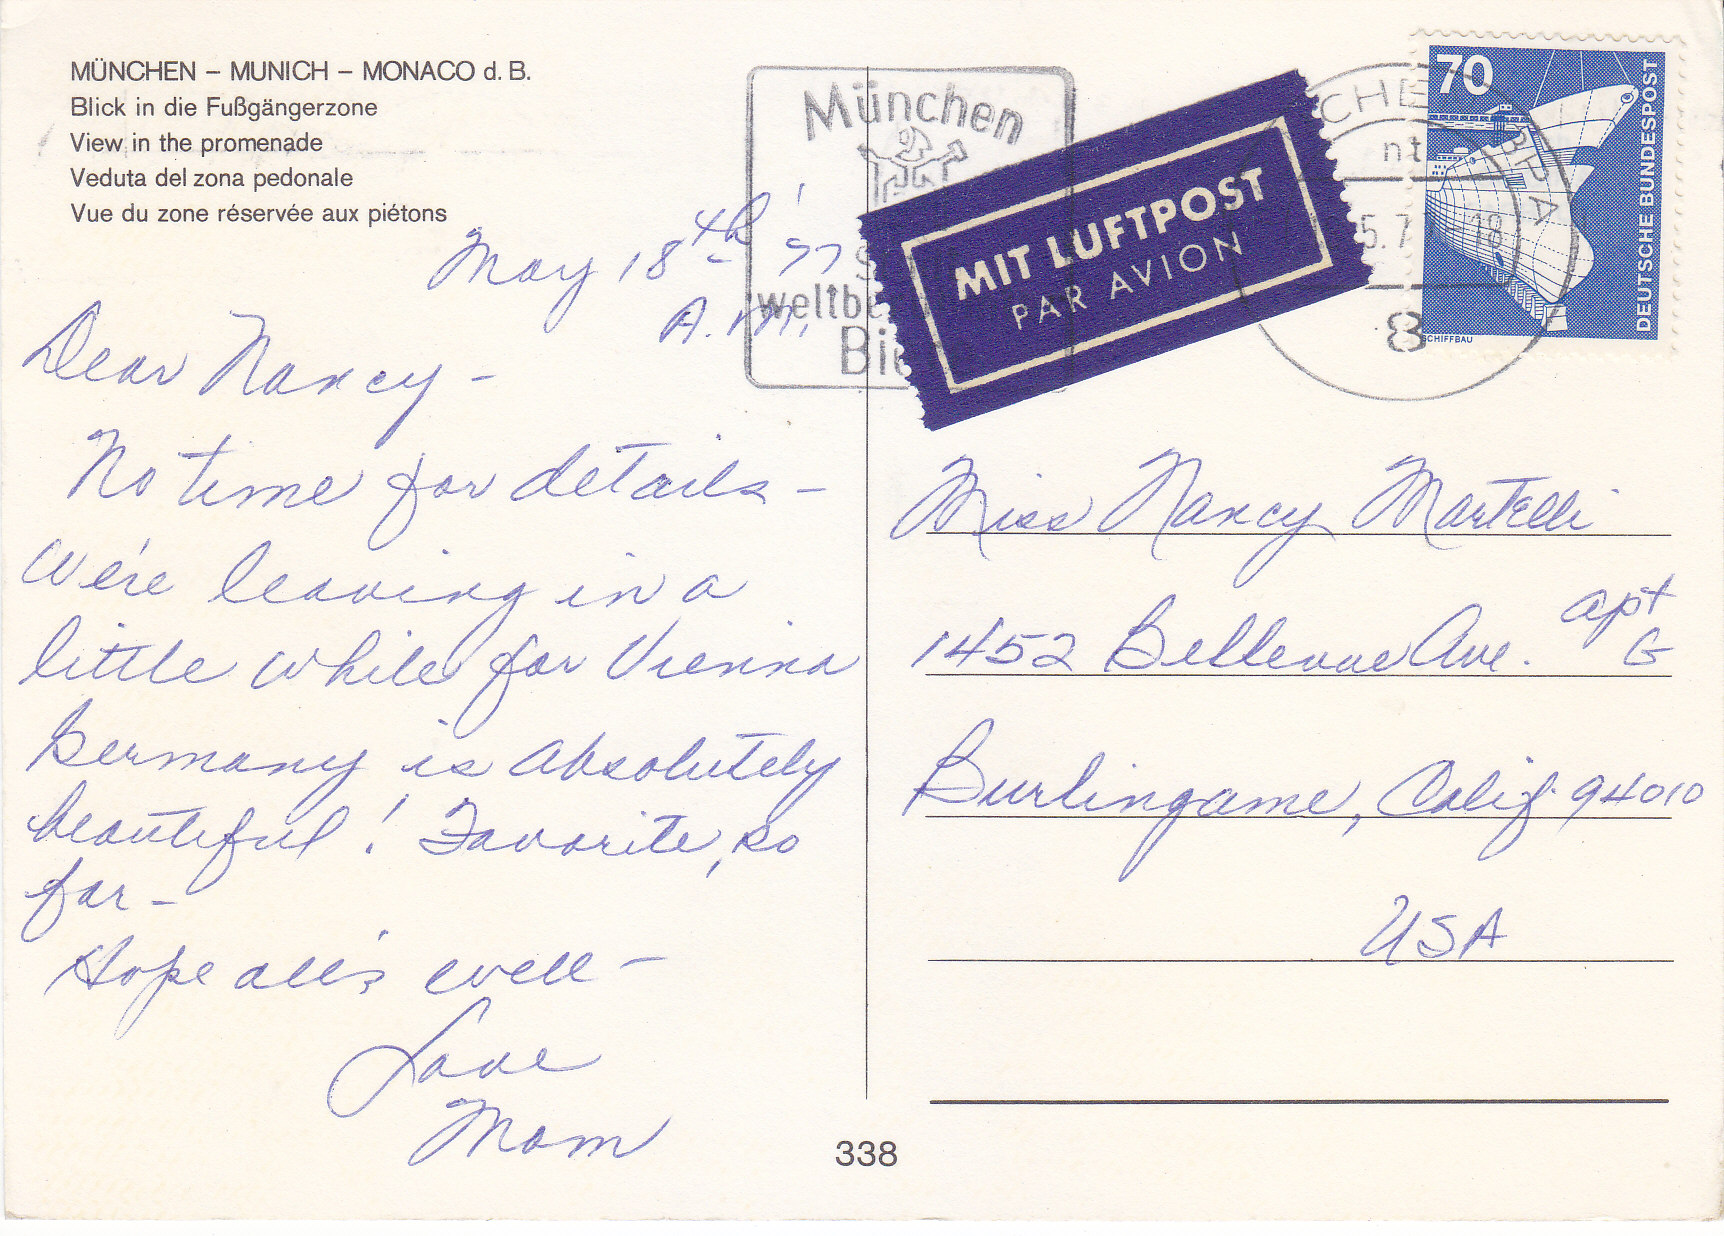 MÜNCHEN – MUNICH – MONACO d. B.
Blick in die Fußgängerzone
View in the promenade
Veduta del zona pedonale
Vue du zone réservée aux piétons
May 18th '77
A.M.
Dear Nancy –
No time for details –
We're leaving in a
little while for Vienna
Germany is absolutely
beautiful! Favorite, so
far –
Hope all's well –
Love
Mom
München
weltb
Bi
MIT LUFTPOST
PAR AVION
CHE
nt
5.7
18
8
70
DEUTSCHE BUNDESPOST
SCHIFFBAU
Miss Nancy Martelli
1452 Bellevue Ave. apt G
Burlingame, Calif. 94010
USA
338